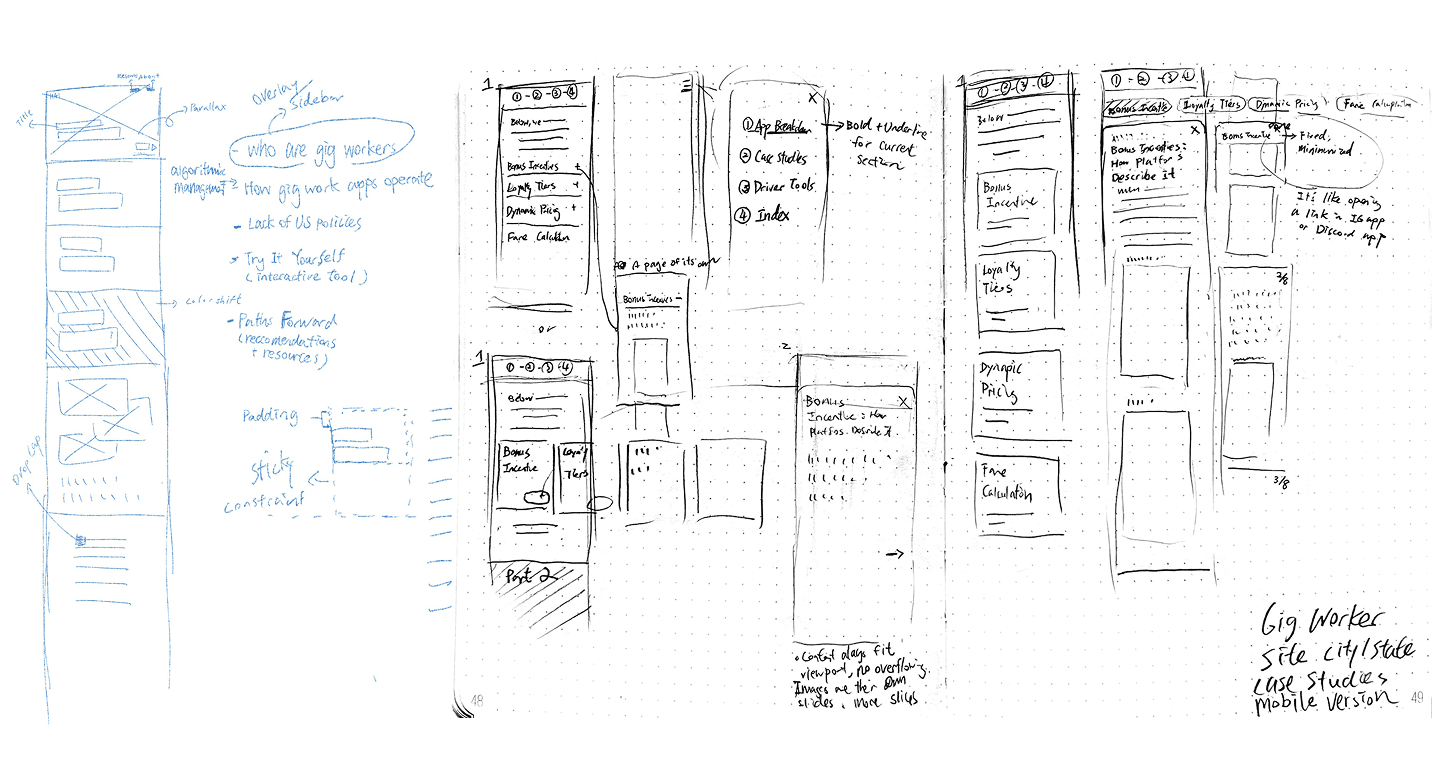 About
Title
Parallax
Overlay
Sidebar
- who are gig workers
algorithmic
management
How gig work apps operate
- Lack of US policies
Try It Yourself
(interactive Tool)
Color shift
- Paths Forward
(reccomendations
+ resources)
Padding
sticky
constraint
Drop Cap
1
①-②-③-④
Bonus Incentives +
Loyalty Tiers +
Dynamic Pricing +
Fare Calculation
or
A page of its own
Bonus Incentives -
X
① App Breakdown
② Case Studies
③ Driver Tools
④ Index
Bold + Underline
for current
section
1
①-②-③-④
Bonus
Incentive
Loyalty
Tiers
Part 2
2
Bonus X
Incentive: How
platforms Describe It
• Content always fit
viewport, no overflowing.
Images are their own
slides, more slides
48
1
①-②-③-④
Bonus
Incentive
Loyalty
Tiers
Dynamic
Pricing
Fare
Calculation
①-②-③-④
Bonus Incentive
Loyalty Tiers
Dynamic Pricing
Fare Calculation
X
Bonus Incentives:
How Platforms
Describe it
Bonus Incentive
Fixed,
Minimized
It's like opening
a link in IG app
or Discord app
3/8
3/8
Gig Worker
Site city/state
case studies
mobile version
49